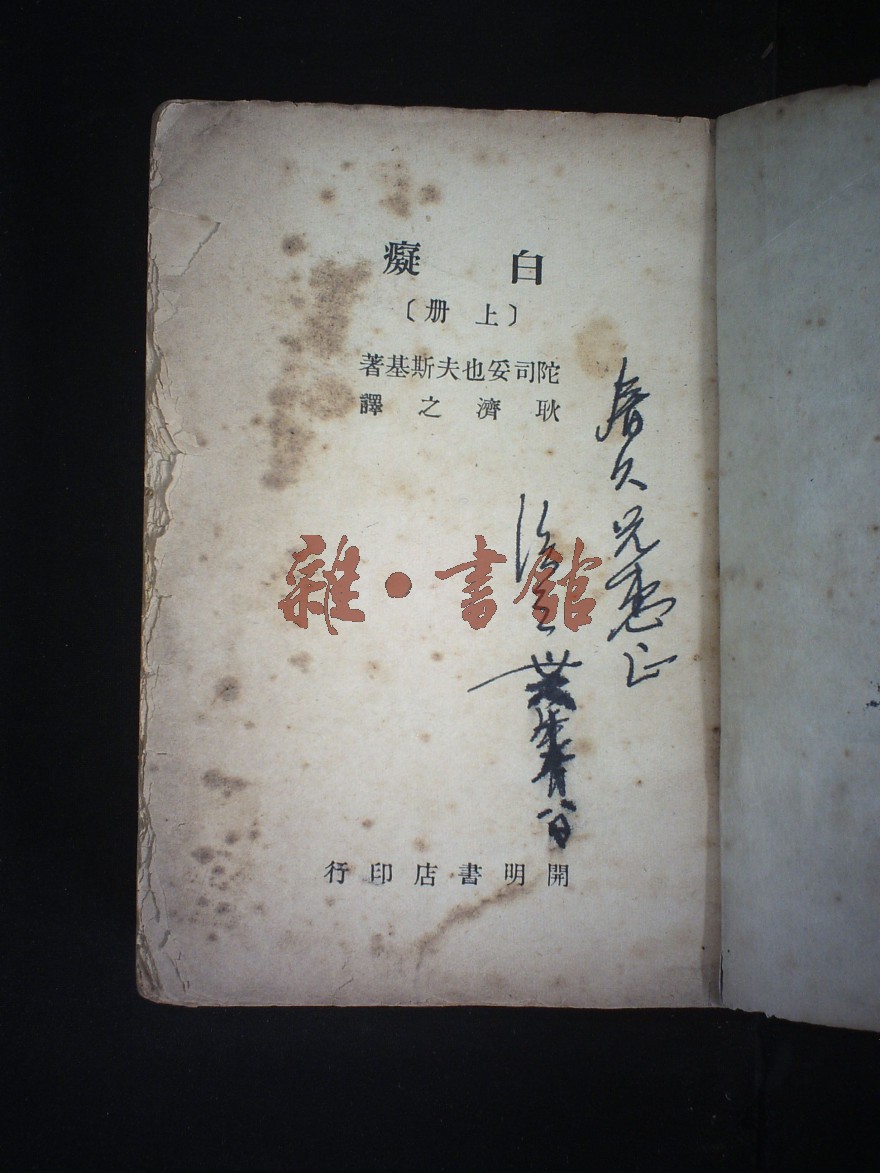 白癡
〔上册〕
陀司妥也夫斯基著
耿濟之譯
春久兄惠正
雜·書館
開明書店印行